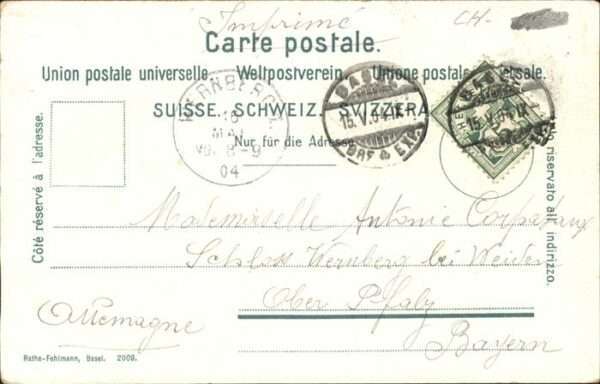 Imprimé
CH-
Carte postale.
Union postale universelle. Weltpostverein. Unione postale
SUISSE. SCHWEIZ. SVIZZERA.
Nur für die Adresse
Côté réservé à l'adresse.
riservato all' indirizzo.
BASEL
15.V.04.IX
EXP.
WERNBERG
16
MAI
8-9
04
15.V.04.IX
Mademoiselle Antonie
Schloss Wernberg bei Weiden
Ober Pfalz
Allemagne
Bayern
Rathe-Fehlmann, Basel. 2009.